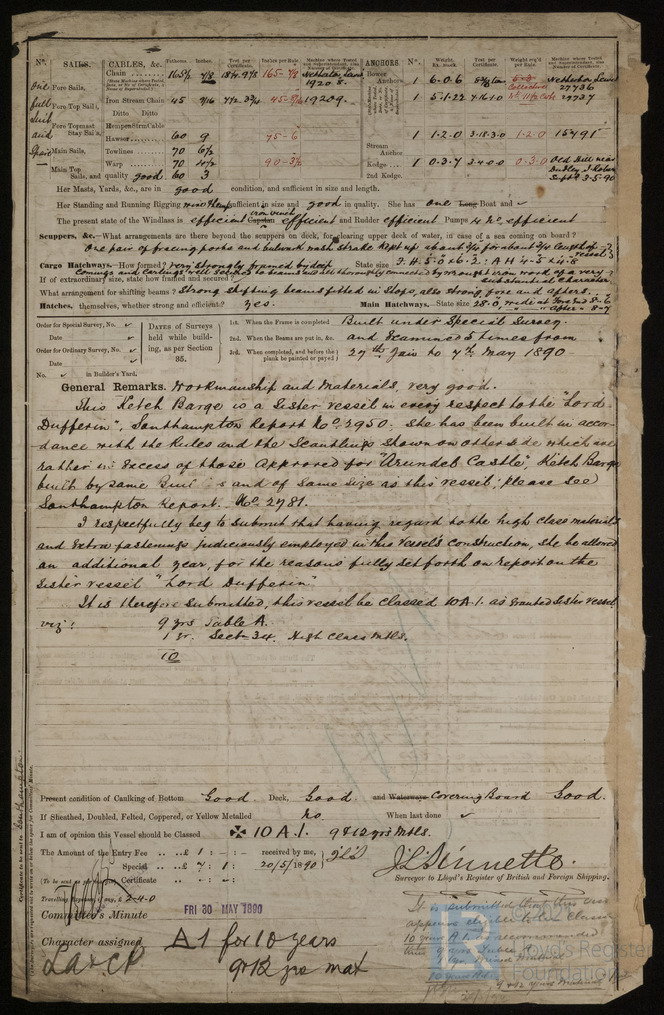 Nº. SAILS. CABLES, &c. Fathoms Inches Test per Certificate. Inches per Rule Machine where Tested and Superintendent, also Number of Certificate. ANCHORS. Nº. Weight. Ex. stock Test per Certificate Weight req'd per Rule Machine where Tested and Superintendent, also Number of Certificate.
one Fore Sails, Chain 165½ 7/8 165-7/8 Bower Anchors 1 6-0-6 Netherton
full Fore Top Sails, Iron Stream Chain 45 9/16 45-9/16 19209. 1 5-1-22 27737
Suit Fore Topmast Stay Sails, Hempen Strm Cable
and Main Sails, Hawser 60 9 75-6 1 1-2-0 3-18-3-0 1-2-0 15491
Spare Towlines 70 6½ Stream Anchor
Main Top Sails, and quality good Warp 70 4½ 90-3½ Kedge 1 0-3-7 3-4-0-0 0-3-0 Old Hill near Dudley
60 3 2nd Kedge. 3-5-90
Her Masts, Yards, &c., are in good condition, and sufficient in size and length.
Her Standing and Running Rigging wire & hemp sufficient in size and good in quality. She has one Long Boat and
The present state of the Windlass is efficient Capstan iron winch efficient and Rudder efficient Pumps 4 No. efficient
Scuppers, &c.—What arrangements are there beyond the scuppers on deck, for clearing upper deck of water, in case of a sea coming on board?
One pair of freeing ports and bulwark wash strake kept up about for about length of vessel
Cargo Hatchways.—How formed? very strongly framed by deep State size F.H. 5-0 x 6-3 : A H 4-5 x 4-6
If of extraordinary size, state how framed and secured? Comings and carlings well secured to beams and all thoroughly connected by wrought iron work of a very substantial character
What arrangement for shifting beams? Strong shifting beams fitted in stops, also strong fore and afters.
Hatches, themselves, whether strong and efficient? yes. Main Hatchways.—State size 28-0, wide at Fore end 8-6
" " After " 8-7
Order for Special Survey, No. DATES of Surveys held while building, as per Section 35. 1st. When the Frame is completed Built under Special Survey.
Date 2nd. When the Beams are put in, &c. and Examined 5 times from
Order for Ordinary Survey, No. 3rd. When completed, and before the plank be painted or payed 27th Jan to 7th May 1890
Date
No. in Builder's Yard.
General Remarks. Workmanship and Materials, very good.
This Ketch Barge is a Sister vessel in every respect to the "Lord
Dufferin", Southampton Report No. 2950. She has been built in accor-
dance with the Rules and the Scantlings shown on other side which are
rather in Excess of those approved for "Arundel Castle", Ketch Barge
built by same Builders and of same size as this vessel, please see
Southampton Report. No. 2781.
I respectfully beg to submit that having regard to the high class materials
and Extra fastenings judiciously employed in this Vessel's Construction, she be allowed
an additional year, for the reasons fully set forth on report on the
Sister vessel "Lord Dufferin"
It is therefore submitted, this vessel be classed 10A.1. as granted sister vessel
viz: 9 yrs Table A.
1 yr. Sect 34. High Class Mtls.
10
Present condition of Caulking of Bottom Good. Deck, Good. and Waterways Covering Board Good.
If Sheathed, Doubled, Felted, Coppered, or Yellow Metalled No When last done
I am of opinion this Vessel should be Classed ✠ 10 A.1. 9 & 12 yrs Mtls.
The Amount of the Entry Fee £ 1 : : received by me,
Special £ 7 : 1 : 20/5/1890
(To be sent as per Certificate
Surveyor to Lloyd's Register of British and Foreign Shipping.
Travelling Expenses, if any, £ 2-4-0
Committee's Minute FRI 30 MAY 1890
Character assigned A1 for 10 years
9 & 12 yrs mat
It is submitted that this case
appears eligible to be classed
10 years A.1. as recommended
Lloyd's Register
Foundation